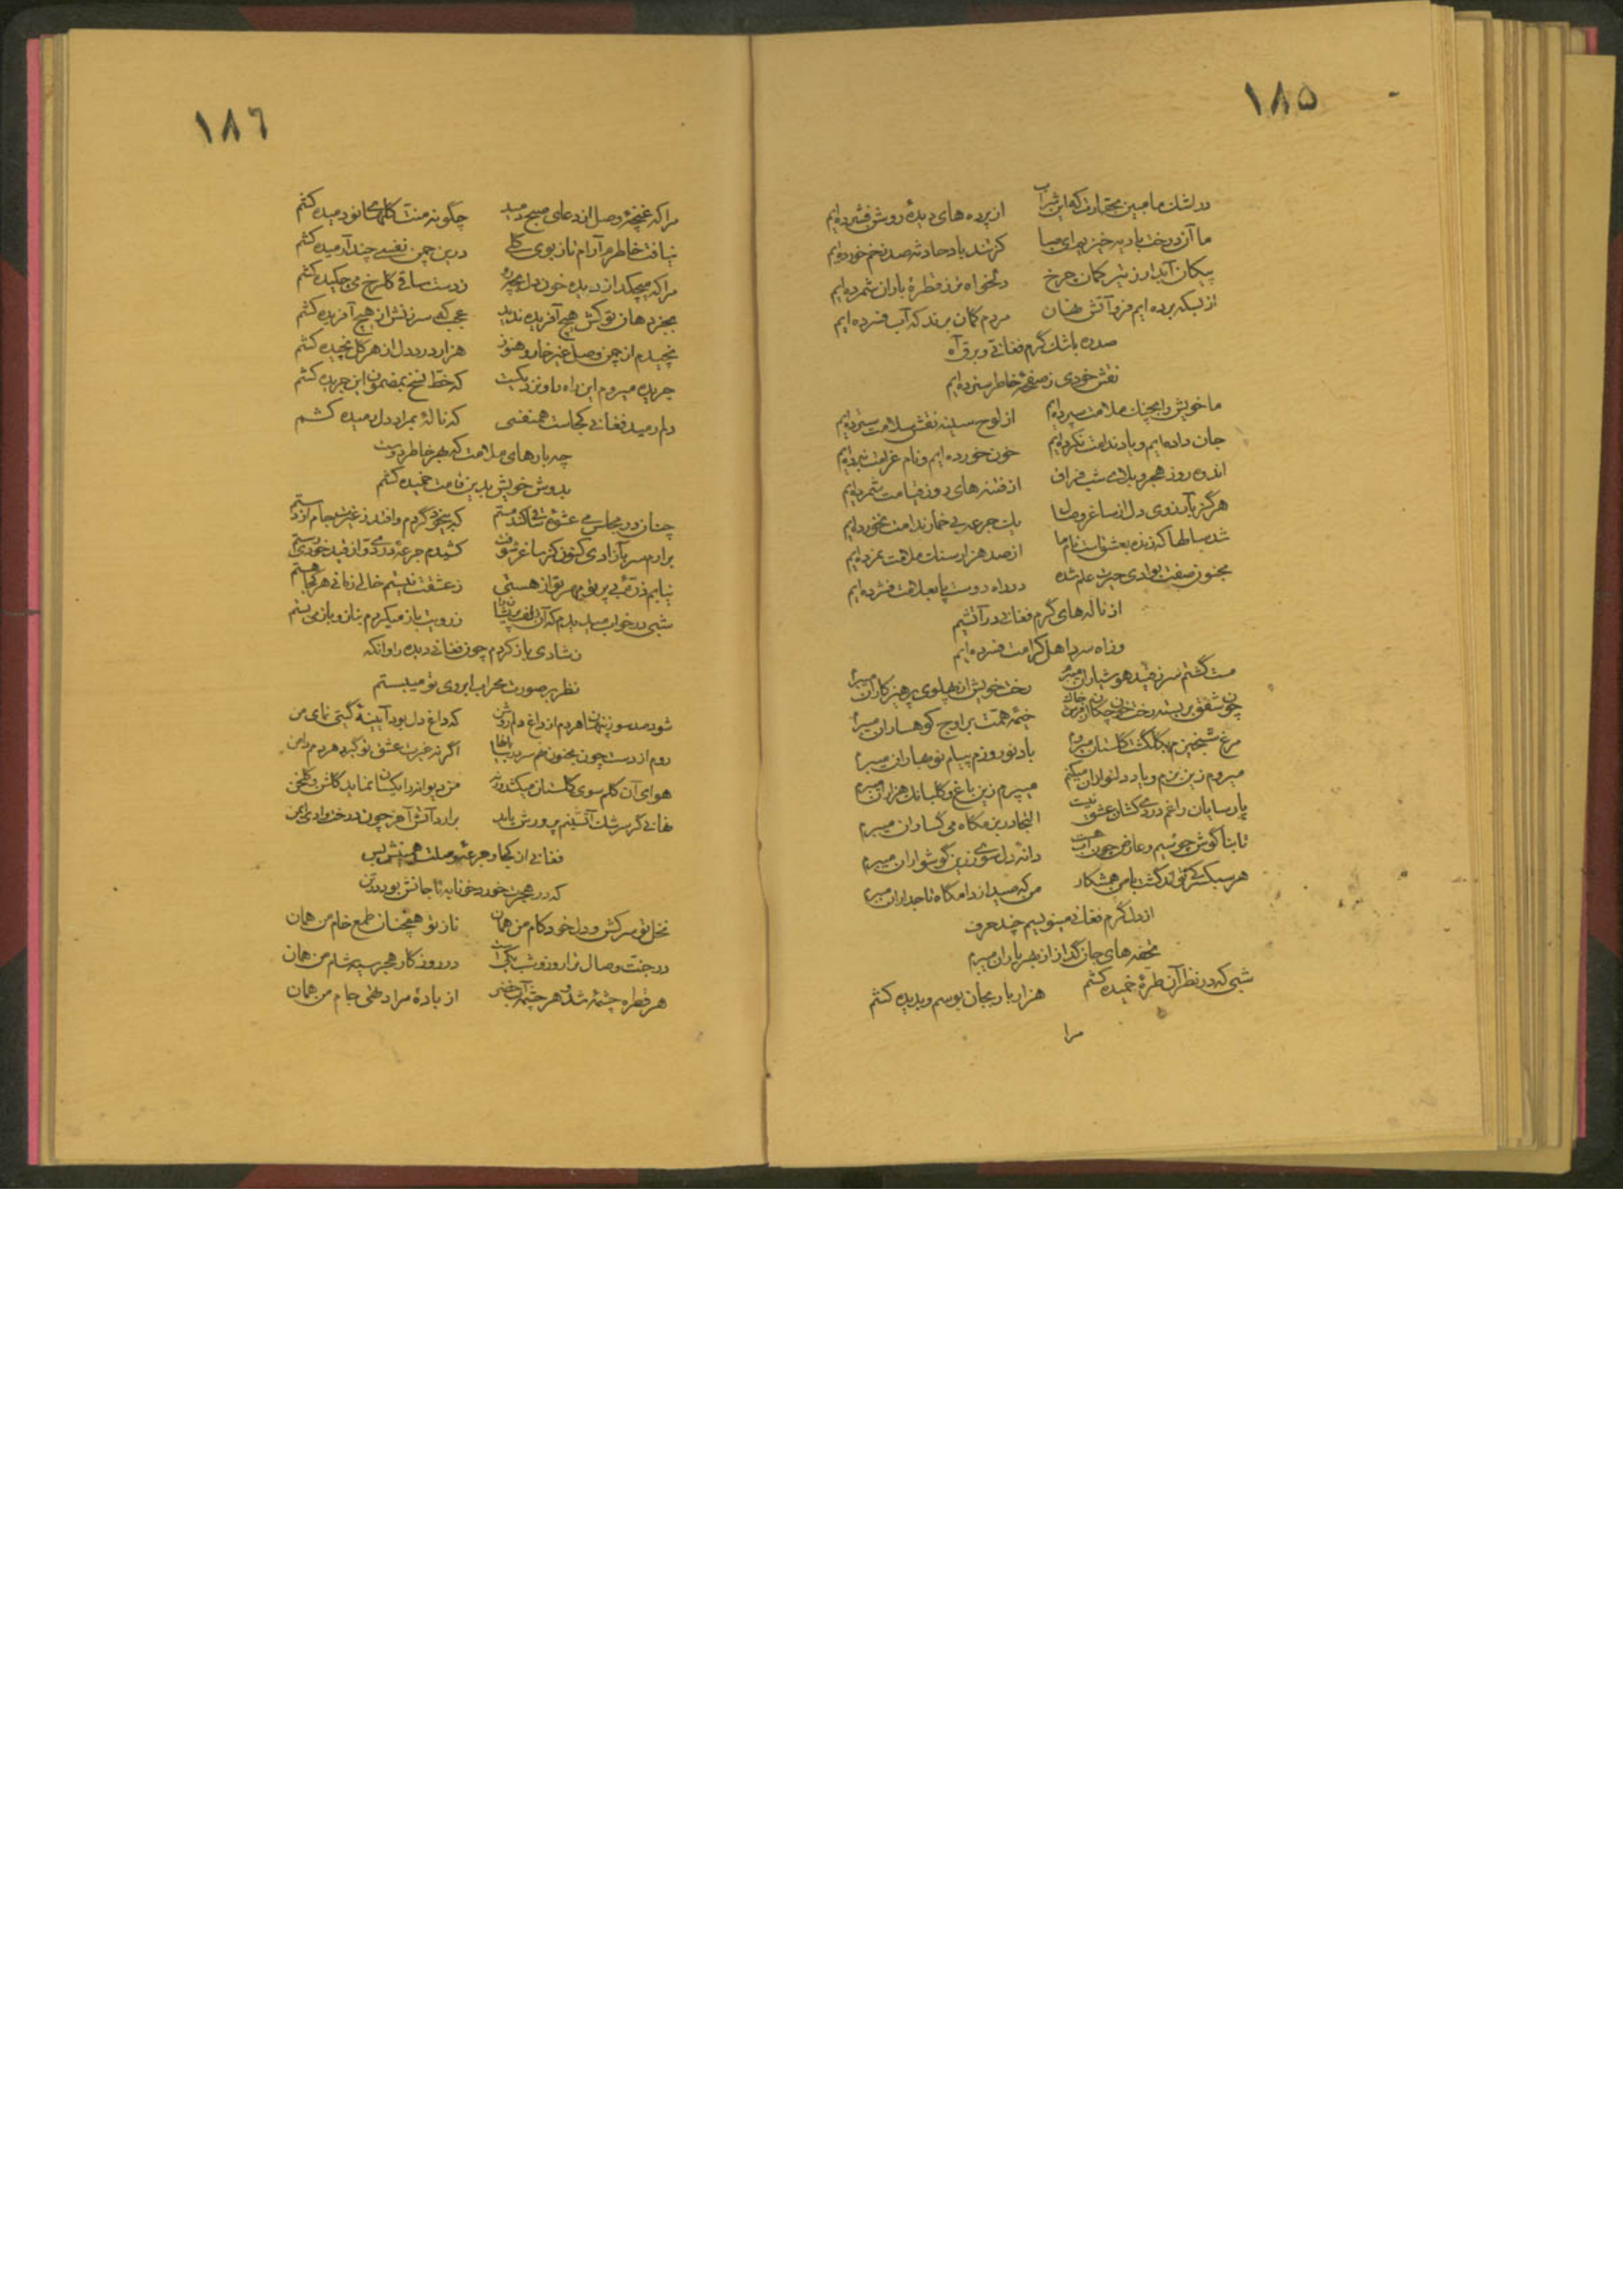 ١٨٥
در اشک ما مبین بحقارت که این شراب از پرده های دیدهٔ روشن فشرده ایم
ما آن درخت بادیه خیزیم ای صبا کز تند باد حادثه صد زخم خورده ایم
پیکان آبدار ز تیر کمان چرخ دلخواه تر ز قطرهٔ باران شمرده ایم
از بسکه برده ایم فرو آتش نهان مردم گمان برند که آب فسرده ایم
صد ره باشک گرم فغانی و برق آه
نقش خودی ز صفحهٔ خاطر سترده ایم
ما خویش را بچنگ ملامت سپرده ایم از لوح سینه نقش سلامت سترده ایم
جان داده ایم و یاد ندامت نکرده ایم خون خورده ایم و نام غرامت نبرده ایم
اندوه روز هجر و بلای شب فراق از فتنه های روز قیامت شمرده ایم
هرگز بآرزوی دل از ساغر وصال یک جرعه بی خمار ندامت نخورده ایم
شد سالها که زنده بعشقست نام ما از صد هزار سنگ ملامت نمرده ایم
مجنون صفت بوادی حیرت علم شده در راه دوست پا بعلامت فشرده ایم
از ناله های گرم فغانی در آتشیم
وز آه سرد اهل کرامت فسرده ایم
مست گشتم سر ز قید هوشیاران میبرم رخت خویش از پهلوی پرهیزکاران میبرم
چون شفق بر بسته رخت خون چکان زین خاک خیمهٔ همت بر اوج کوهساران میبرم
مرغ شبخیزم بگلگشت گلستان میروم باد نوروزم پیام نوبهاران میبرم
میروم زین بزم و یاد دلنوازان میکنم میپرم زین باغ و گلبانگ هزاران میبرم
پارسایان را غم دردی کشان عشق نیست التجا در بزمگاه می گساران میبرم
تا بناگوش چو سیم و عارض چون آب هست دانهٔ دل سوی زرین گوشواران میبرم
هر سبکسر کی تواند گشت با من همشکار من که صید از دامگاه تاجداران میبرم
از دل گرم فغانی مینویسم چند حرف
تحفه های جان گداز از بهر یاران میبرم
شبی که در نظر آن طرهٔ خمیده کشم هزار بار بجان بوسم و بدیده کشم
مرا
١٨٦
مرا که غنچهٔ وصل از دعای صبح دمید چگونه منت گلهای نو دمیده کشم
نیافت خاطرم آرام تا ز بوی گلی درین چمن نفسی چند آرمیده کشم
مرا که میچکد از دیده خون دل ز دست ساقی گلرخ می چکیده کشم
بجز دهان تو کش هیچ آفریده ندید عجب که سرزنش از هیچ آفریده کشم
نچیدم از چمن وصل غیر خار و هنوز هزار درد دل از هر گل نچیده کشم
جریده میروم این راه و نزدیکست که خط نسخ بمضمون این جریده کشم
دلم رمید فغانی کجاست همنفسی که نالهٔ بمراد دل رمیده کشم
چه بارهای ملامت که بهر خاطر دوست
بدوش خویش بدین قامت خمیده کشم
چنان در مجلس می عشوهٔ ساقی کند مستم که بیخود گردم و افتد ز غیرت جام از دستم
برارم سر بآزادی کنون کز ساغر شوقت کشیدم جرعهٔ دردی و از قید خودی رستم
نیابم ذرهٔ بی پرتو مهر تو از هستی ز عشقت نیستم خالی زمانی هر کجا هستم
شبی در خواب میدیدم که آن زلف پریشان را ز رویت باز میکردم بناز و باز می بستم
ز شادی باز کردم چون فغانی دیده را وانگه
نظر بر صورت محراب ابروی تو میبستم
شود صد سوز پنهان هر دم از داغ دلم روشن که داغ دل بود آیینهٔ گیتی نمای من
روم از دست چون مجنون نهم سر در بیابانها اگر نه غیرت عشق تو گیرد هر دم دامن
هوای آن گلم سوی گلستان میکشد ورنه من دیوانه را یکسان نماید گلشن و گلخن
نهالی کز سرشک آتشینم پرورش یابد برارد آتش آخر چون درخت وادی ایمن
فغانی از کجا و جرعهٔ وصلت همینش بس
که در هجرت خورد خونابه تا جانش بود در تن
نخل تو سرکش و دل خودکام من همان ناز تو همچنان طمع خام من همان
در جنت وصال ترا روز و شب یکی است در روزگار هجر سیه شام من همان
هر قطره چشمهٔ شد و هر چشمه آب خضر از بادهٔ مراد تهی جام من همان